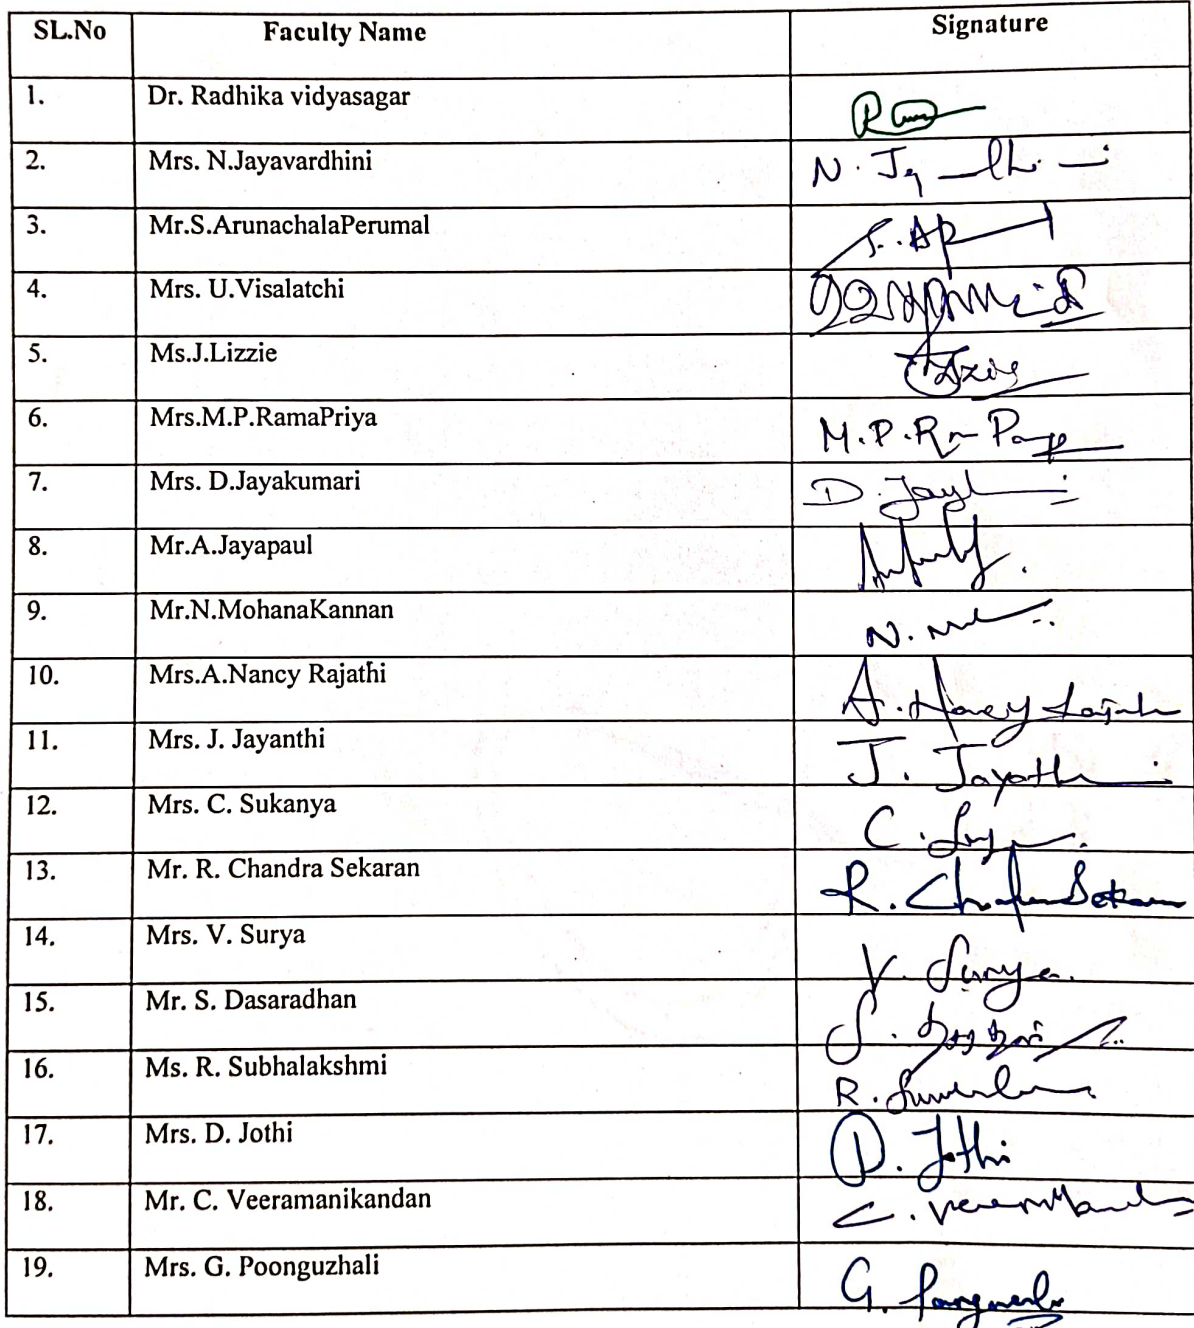 SL.No Faculty Name Signature
1. Dr. Radhika vidyasagar
2. Mrs. N.Jayavardhini N.
3. Mr.S.ArunachalaPerumal S.
4. Mrs. U.Visalatchi
5. Ms.J.Lizzie
6. Mrs.M.P.RamaPriya M.P.
7. Mrs. D.Jayakumari D.
8. Mr.A.Jayapaul
9. Mr.N.MohanaKannan N.
10. Mrs.A.Nancy Rajathi A. Nancy
11. Mrs. J. Jayanthi J.
12. Mrs. C. Sukanya C.
13. Mr. R. Chandra Sekaran R.
14. Mrs. V. Surya V. Surya.
15. Mr. S. Dasaradhan S.
16. Ms. R. Subhalakshmi R.
17. Mrs. D. Jothi D. Jothi
18. Mr. C. Veeramanikandan C.
19. Mrs. G. Poonguzhali G.